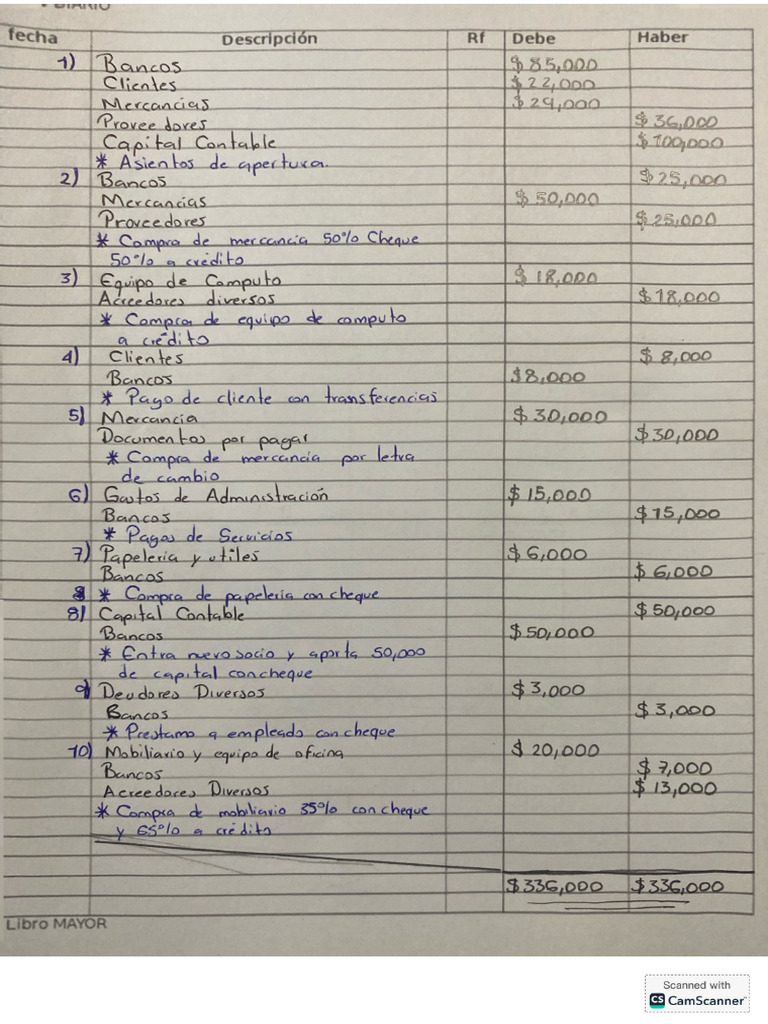 DIARIO
fecha Descripción Rf Debe Haber
1) Bancos $85,000
Clientes $22,000
Mercancias $29,000
Proveedores $36,000
Capital Contable $100,000
* Asientos de apertura.
2) Bancos $25,000
Mercancias $50,000
Proveedores $25,000
* Compra de mercancia 50% Cheque
50% a crédito
3) Equipo de Computo $18,000
Acreedores diversos $18,000
* Compra de equipo de computo
a crédito
4) Clientes $8,000
Bancos $8,000
* Pago de cliente con transferencias
5) Mercancia $30,000
Documentos por pagar $30,000
* Compra de mercancia por letra
de cambio
6) Gastos de Administración $15,000
Bancos $15,000
* Pagos de Servicios
7) Papeleria y utiles $6,000
Bancos $6,000
* Compra de papeleria con cheque
8) Capital Contable $50,000
Bancos $50,000
* Entra nuevo socio y aporta 50,000
de capital con cheque
9) Deudores Diversos $3,000
Bancos $3,000
* Prestamo a empleado con cheque
10) Mobiliario y equipo de oficina $20,000
Bancos $7,000
Acreedores Diversos $13,000
* Compra de mobiliario 35% con cheque
y 65% a crédito
$336,000 $336,000
Libro MAYOR
Scanned with
CS CamScanner